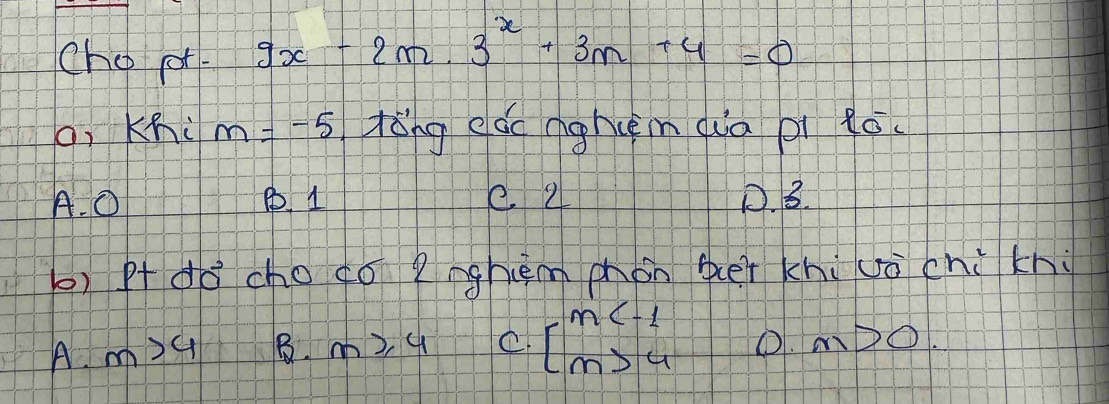 Cho pt. 9x - 2m. 3^x + 3m + 4 = 0
a, Khi m = -5, tổng các nghiệm của pt là:
A. 0 B. 1 C. 2 D. 3.
b) Pt đã cho có 2 nghiệm phân biệt khi và chỉ khi
A. m > 4 B. m ≥ 4 C. [ m < -1 D. m > 0.
m > 4